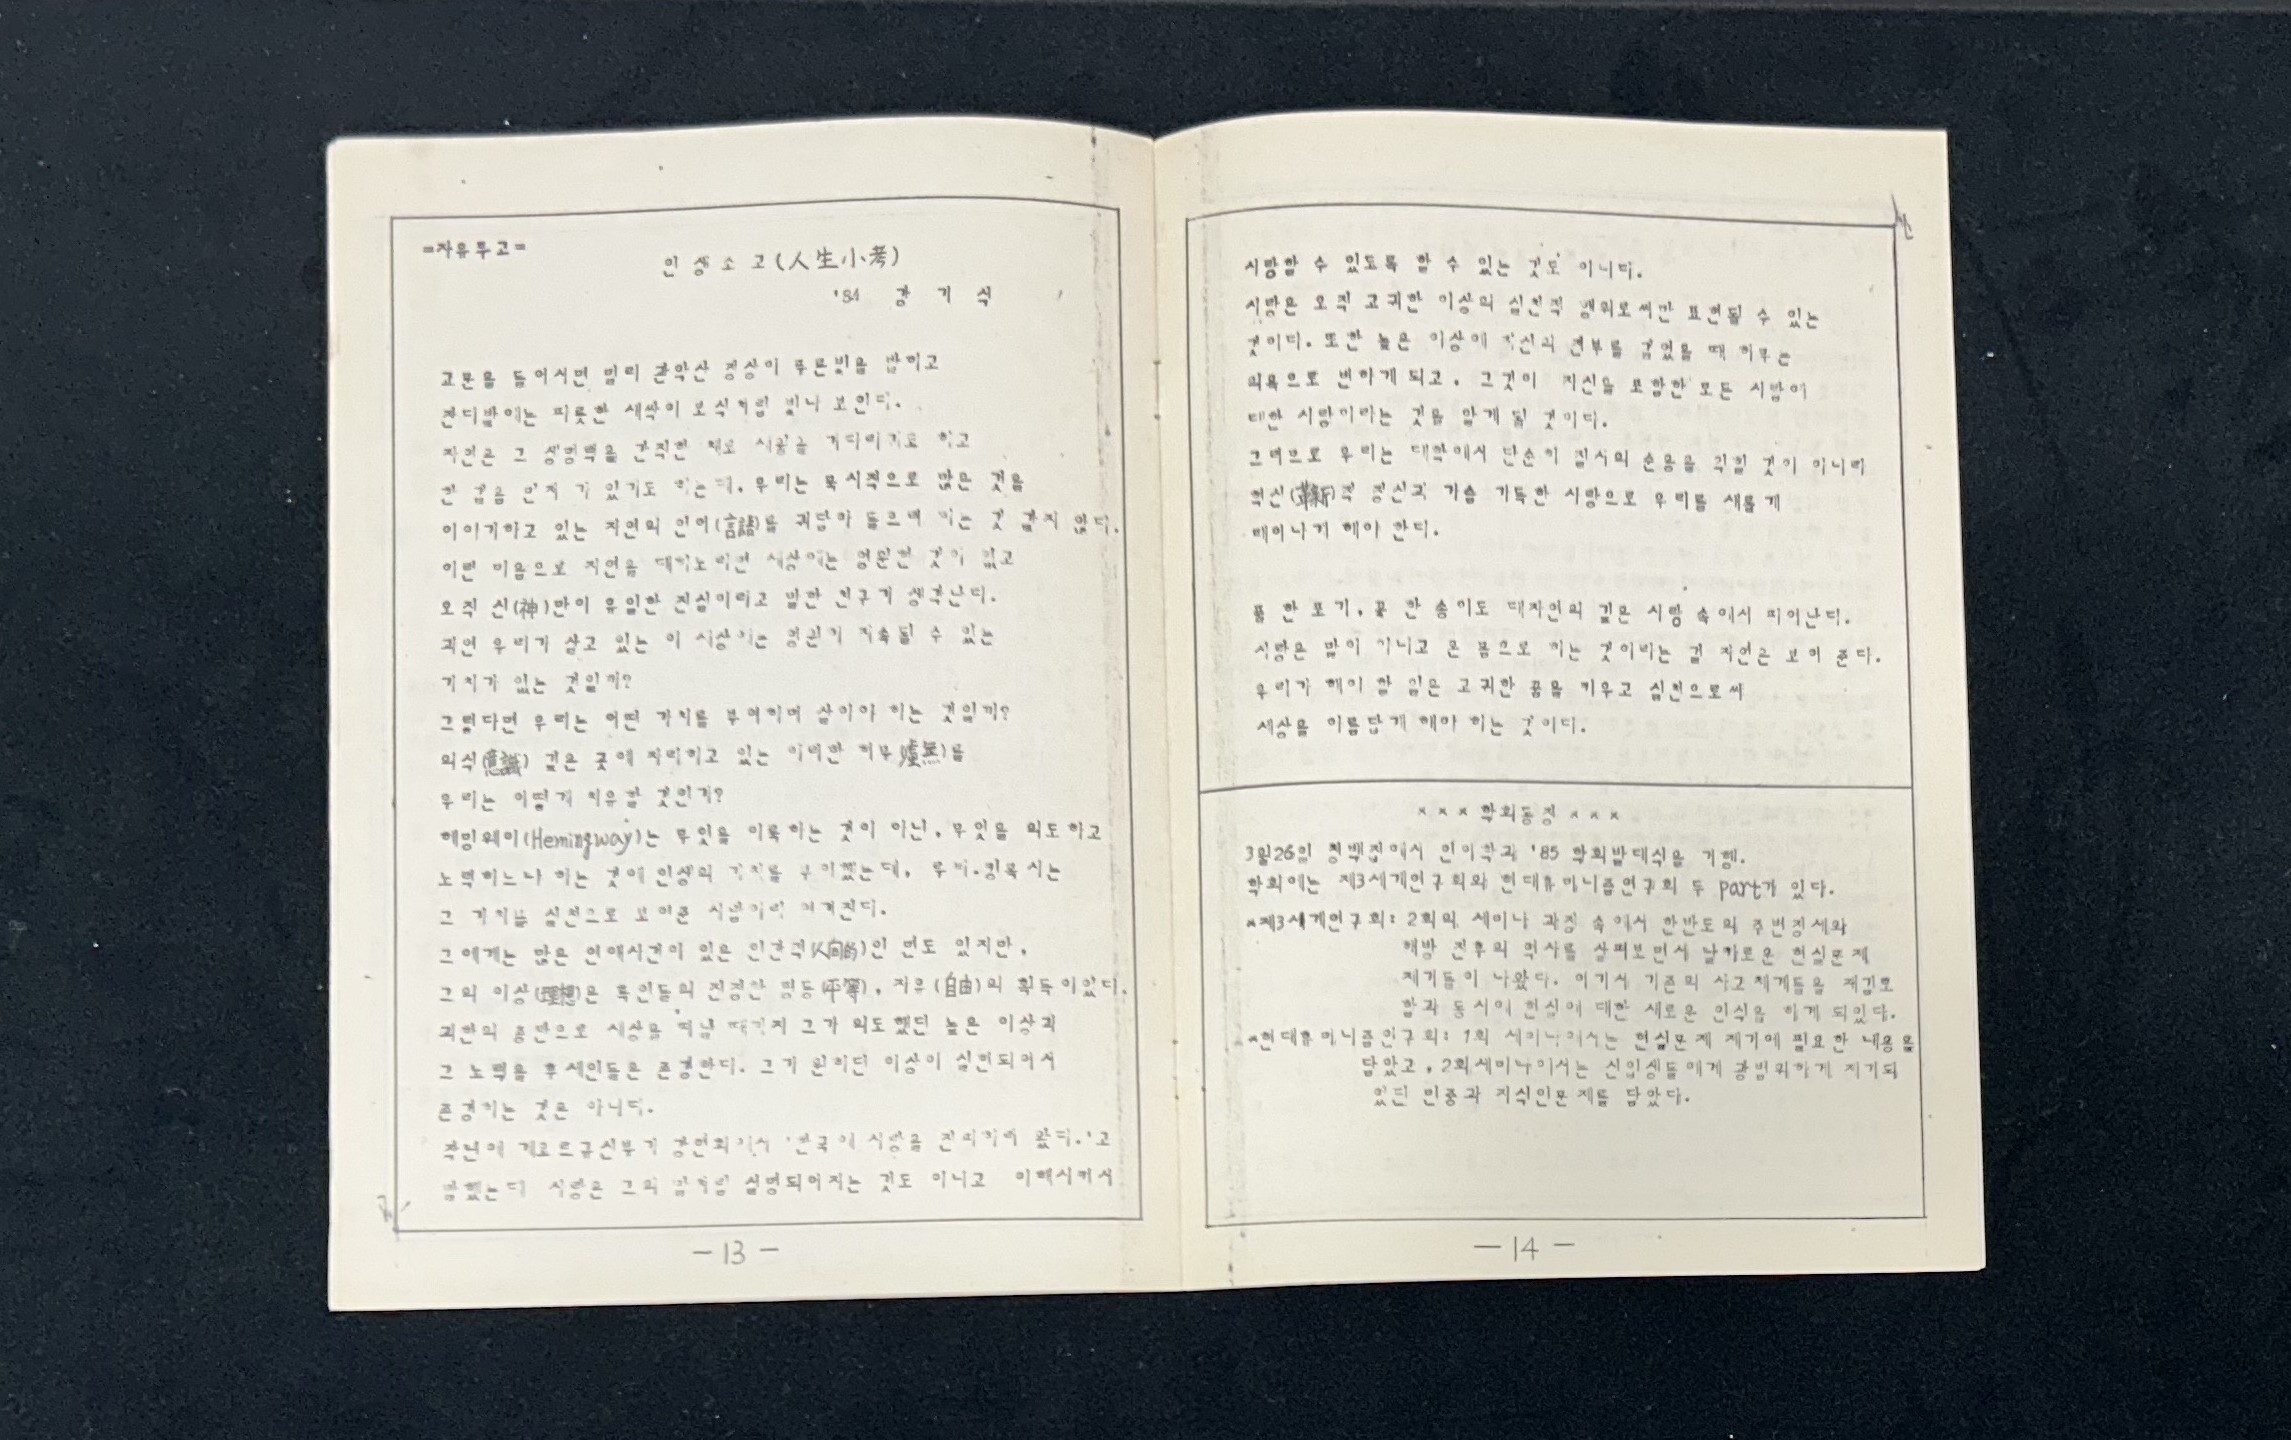 =자유투고=
인생소고(人生小考)
'84 강기식
교문을 들어서면 멀리 관악산 정상이 푸른빛을 발하고
잔디밭에는 파릇한 새싹이 보석처럼 빛나 보인다.
자연은 그 생명력을 간직한 채로 새봄을 기다리기도 하고
한 걸음 먼저 가 있기도 하는데, 우리는 묵시적으로 많은 것을
이야기하고 있는 자연의 언어(言語)를 귀담아 들으려 하는 것 같지 않다.
이런 마음으로 자연을 대하노라면 세상에는 영원한 것이 없고
오직 신(神)만이 유일한 진실이라고 말한 친구가 생각난다.
과연 우리가 살고 있는 이 세상에는 영원히 지속될 수 있는
가치가 없는 것일까?
그렇다면 우리는 어떤 가치를 부여하며 살아야 하는 것일까?
의식(意識) 깊은 곳에 자리하고 있는 이러한 허무(虛無)를
우리는 어떻게 치유할 것인가?
헤밍웨이(Hemingway)는 무엇을 이룩하는 것이 아닌, 무엇을 의도하고
노력하느냐 하는 것에 인생의 가치를 부여했는데, 루터.킹목사는
그 가치를 실천으로 보여준 사람이라 여겨진다.
그에게는 많은 연애사건이 있은 인간적(人間的)인 면도 있지만,
그의 이상(理想)은 흑인들의 진정한 평등(平等), 자유(自由)의 획득이었다.
괴한의 총탄으로 세상을 떠날 때까지 그가 의도했던 높은 이상과
그 노력을 후세인들은 존경한다. 그가 원하던 이상이 실현되어서
존경하는 것은 아니다.
작년에 게오르규신부가 강연회에서 '한국에 사랑을 전하러 왔다.'고
말했는데 사랑은 그의 말처럼 설명되어지는 것도 아니고 이해시켜서
-13-
사랑할 수 있도록 할 수 있는 것도 아니다.
사랑은 오직 고귀한 이상의 실천적 행위로써만 표현될 수 있는
것이다. 또한 높은 이상에 자신의 전부를 걸었을 때 허무는
의욕으로 변하게 되고, 그것이 자신을 포함한 모든 사람에
대한 사랑이라는 것을 알게 될 것이다.
그러므로 우리는 대학에서 단순히 질서의 순응을 익힐 것이 아니라
혁신(革新)적 정신과 가슴 가득한 사랑으로 우리를 새롭게
태어나게 해야 한다.
풀 한 포기, 꽃 한 송이도 대자연의 깊은 사랑 속에서 피어난다.
사랑은 말이 아니고 온 몸으로 하는 것이라는 걸 자연은 보여 준다.
우리가 해야 할 일은 고귀한 꿈을 키우고 실천으로써
세상을 아름답게 해야 하는 것이다.
x x x 학회동정 x x x
3월26일 청백집에서 언어학과 '85 학회발대식을 거행.
학회에는 제3세계연구회와 현대휴머니즘연구회 두 part가 있다.
*제3세계연구회: 2회의 세미나 과정 속에서 한반도의 주변정세와
해방 전후의 역사를 살펴보면서 날카로운 현실문제
제기들이 나왔다. 여기서 기존의 사고체계들을 재검토
함과 동시에 현실에 대한 새로운 인식을 하게 되었다.
*현대휴머니즘연구회: 1회 세미나에서는 현실문제 제기에 필요한 내용을
담았고, 2회세미나에서는 신입생들에게 광범위하게 제기되
었던 민중과 지식인문제를 담았다.
-14-